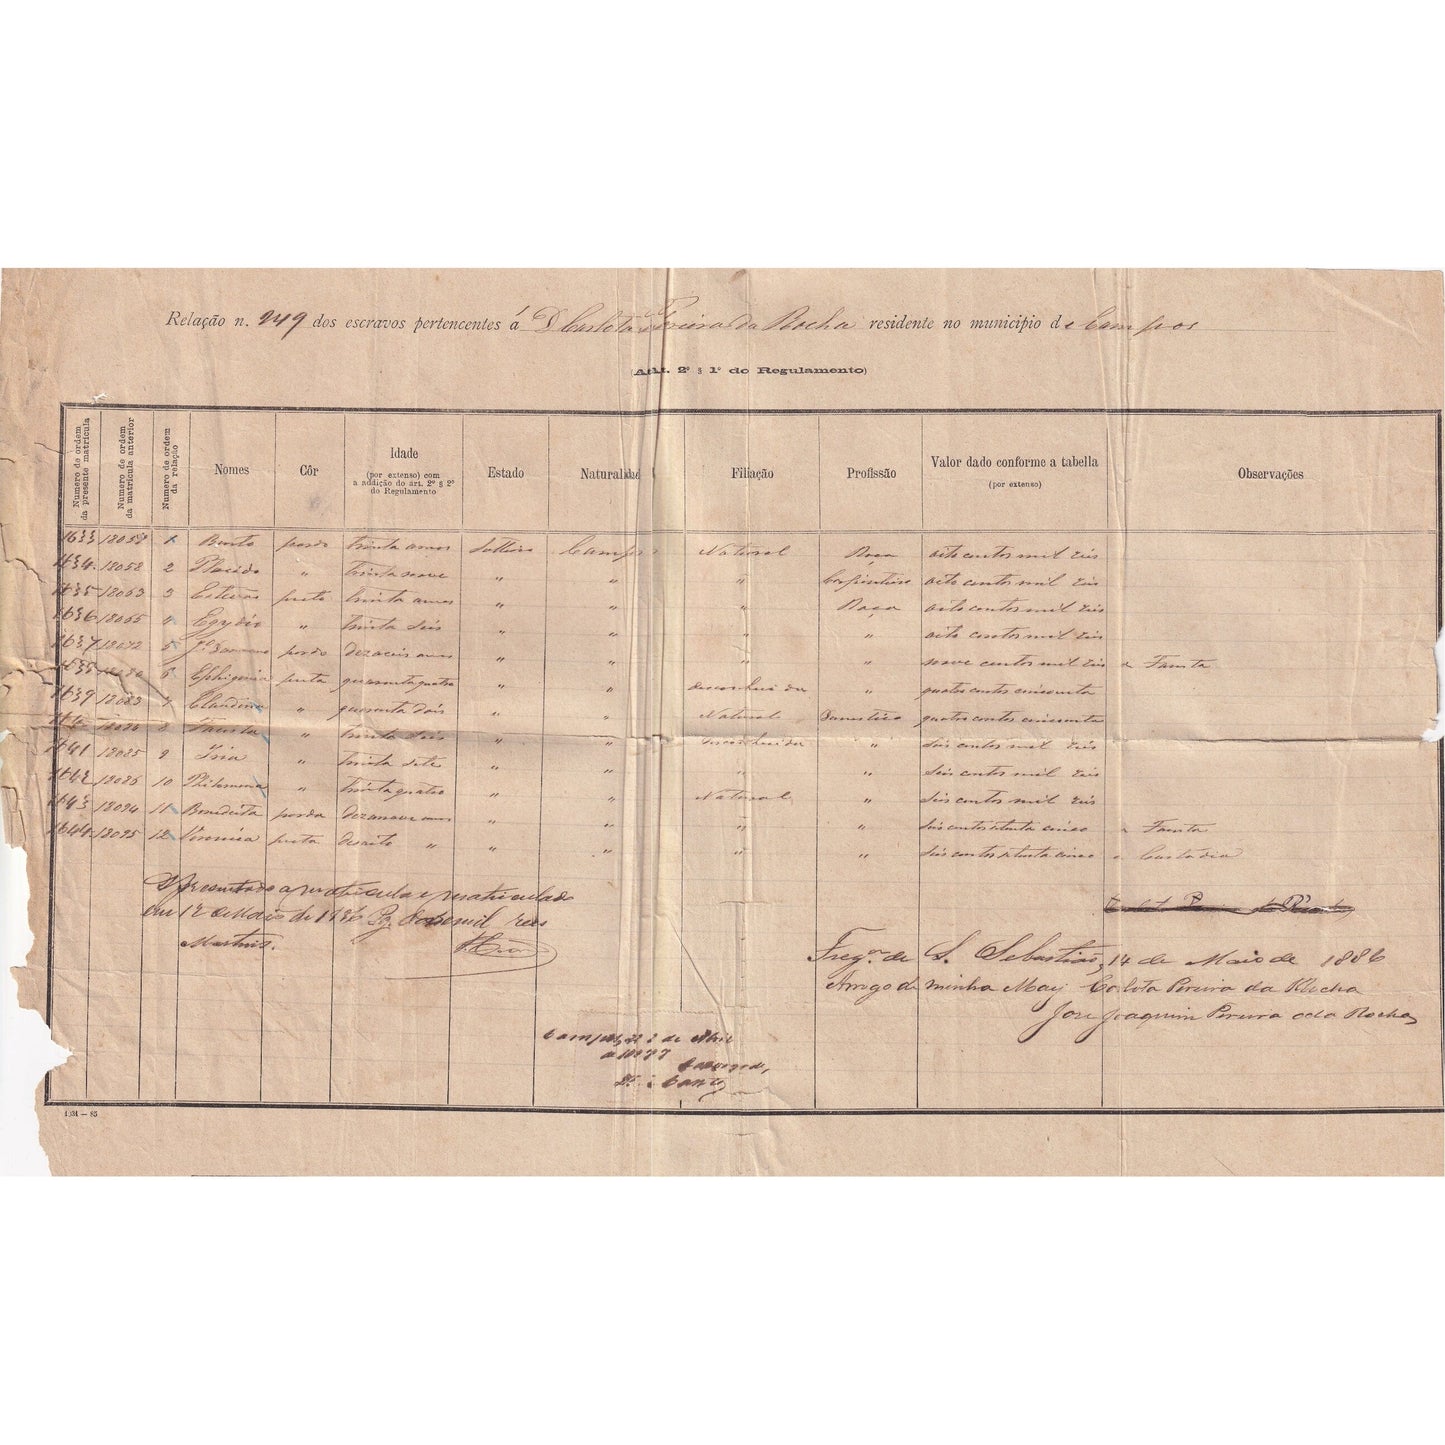 Relação n. 249 dos escravos pertencentes á D Carlota Pereira da Rocha residente no municipio de Campos
(Art. 2º § 1º do Regulamento)
Numero de ordem da presente matricula | Numero de ordem da matricula anterior | Numero de ordem da relação | Nomes | Côr | Idade (por extenso) com a addição do art. 2º § 2º do Regulamento | Estado | Naturalidade | Filiação | Profissão | Valor dado conforme a tabella (por extenso) | Observações
1633 | 1 | Bento | pardo | trinta annos | Solteiro | Campos | Natural | Roça | oito centos mil réis
1634 | 18058 | 2 | Placido | " | trinta nove | " | " | " | Carpinteiro | oito centos mil réis
1635 | 18063 | 3 | Estevão | preto | trinta annos | " | " | " | Roça | oito centos mil réis
1636 | 18065 | 4 | Egydio | " | trinta seis | " | " | " | " | oito centos mil réis
1637 | 18072 | 5 | pardo | dezaceis annos | " | " | " | " | nove centos mil réis | de Fausta
6 | Ephigenia | preta | quarenta quatro | " | " | desconhecida | " | quatro centos cincoenta
1639 | 18083 | 7 | Claudina | " | quarenta dois | " | " | Natural | Domestico | quatro centos cincoenta
8 | Fausta | " | trinta seis | " | " | desconhecida | " | seis centos mil réis
1641 | 18085 | 9 | Iria | " | trinta sete | " | " | " | " | seis centos mil réis
1642 | 18086 | 10 | Philomena | " | trinta quatro | " | " | Natural | " | seis centos mil réis
1643 | 18094 | 11 | Benedicta | parda | dezanove annos | " | " | " | " | seis centos setenta cinco | de Fausta
1644 | 18095 | 12 | Veronica | preta | desoito " | " | " | " | " | seis centos setenta cinco | de Custodia
Apresentado a matricula e matriculado
em 12 de Maio de 1886 Pg. mil reis
Martins.
Fregª. de S. Sebastião, 14 de Maio de 1886
Arrogo de minha May Carlota Pereira da Rocha
José Joaquim Pereira da Rocha
Campos, de Abril
de 1887
1034 — 85